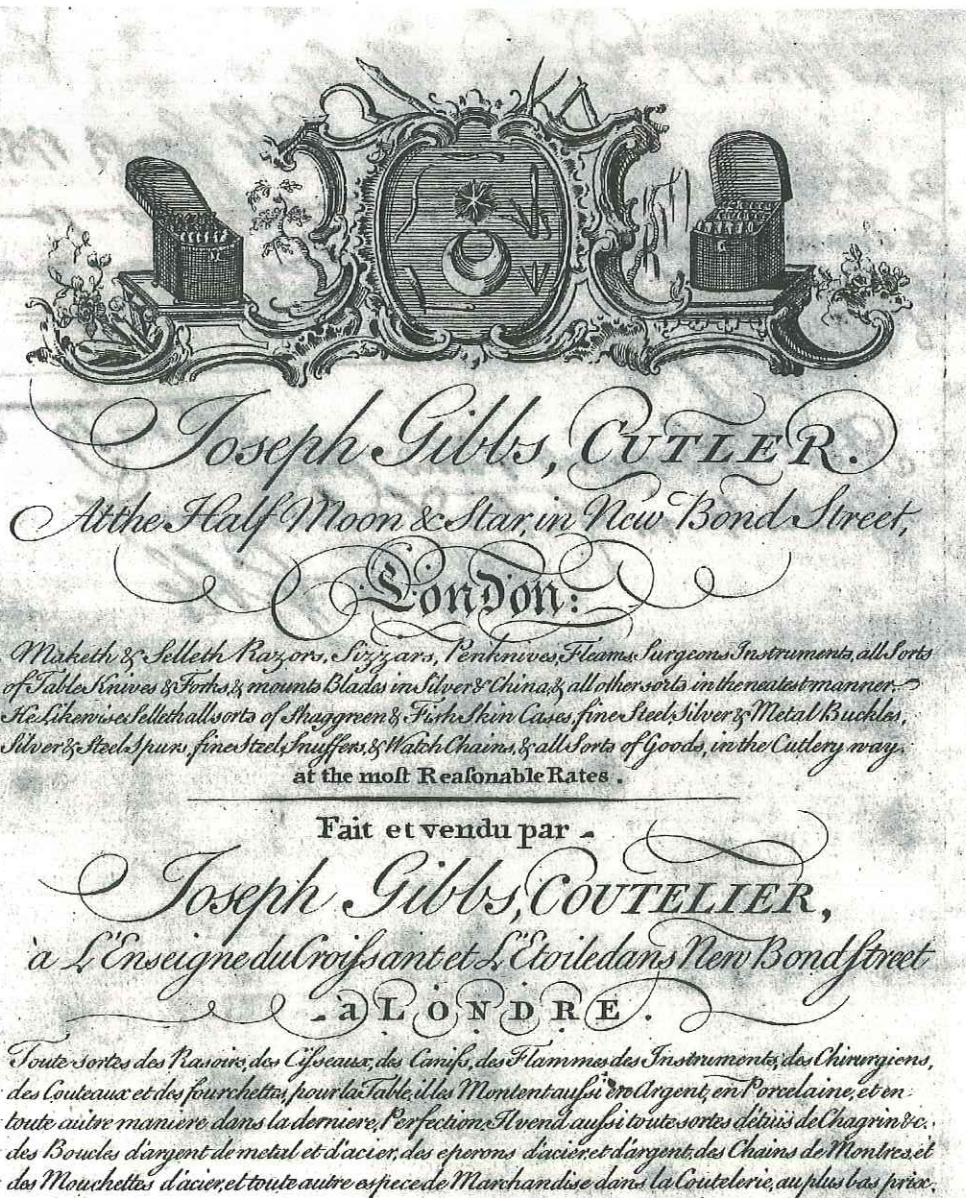 Joseph Gibbs, CUTLER.
At the Half Moon & Star, in New Bond Street,
London:
Maketh & Selleth Razors, Sizzars, Penknives, Fleams, Surgeons Instruments, all Sorts
of Table Knives & Forks, & mounts Blades in Silver & China, & all other sorts in the neatest manner.
He Likewise Selleth all sorts of Shaggreen & Fish Skin Cases, fine Steel, Silver & Metal Buckles,
Silver & Steel Spurs, fine Steel Snuffers, & Watch Chains, & all Sorts of Goods, in the Cutlery way,
at the moſt Reaſonable Rates.
Fait et vendu par
Joseph Gibbs, COUTELIER,
à L'Enseigne du Croiſsant et L'Etoile dans New Bond ſtreet
à LONDRE.
Toute sortes des Rasoirs, des Ciſseaux, des Canifs, des Flammes des Instruments, des Chirurgiens,
des Couteaux et des fourchettes, pour la Table, il les Montent auſsi en Argent, en Porcelaine, et en
toute autre maniere dans la derniere Perfection Il vend auſsi toute sortes détuis de Chagrin &c.
des Boucles d'argent de metal et d'acier, des eperons d'acier et d'argent, des Chains de Montres, et
des Mouchettes d'acier, et toute autre espece de Marchandise dans la Coutelerie, au plus bas prix.